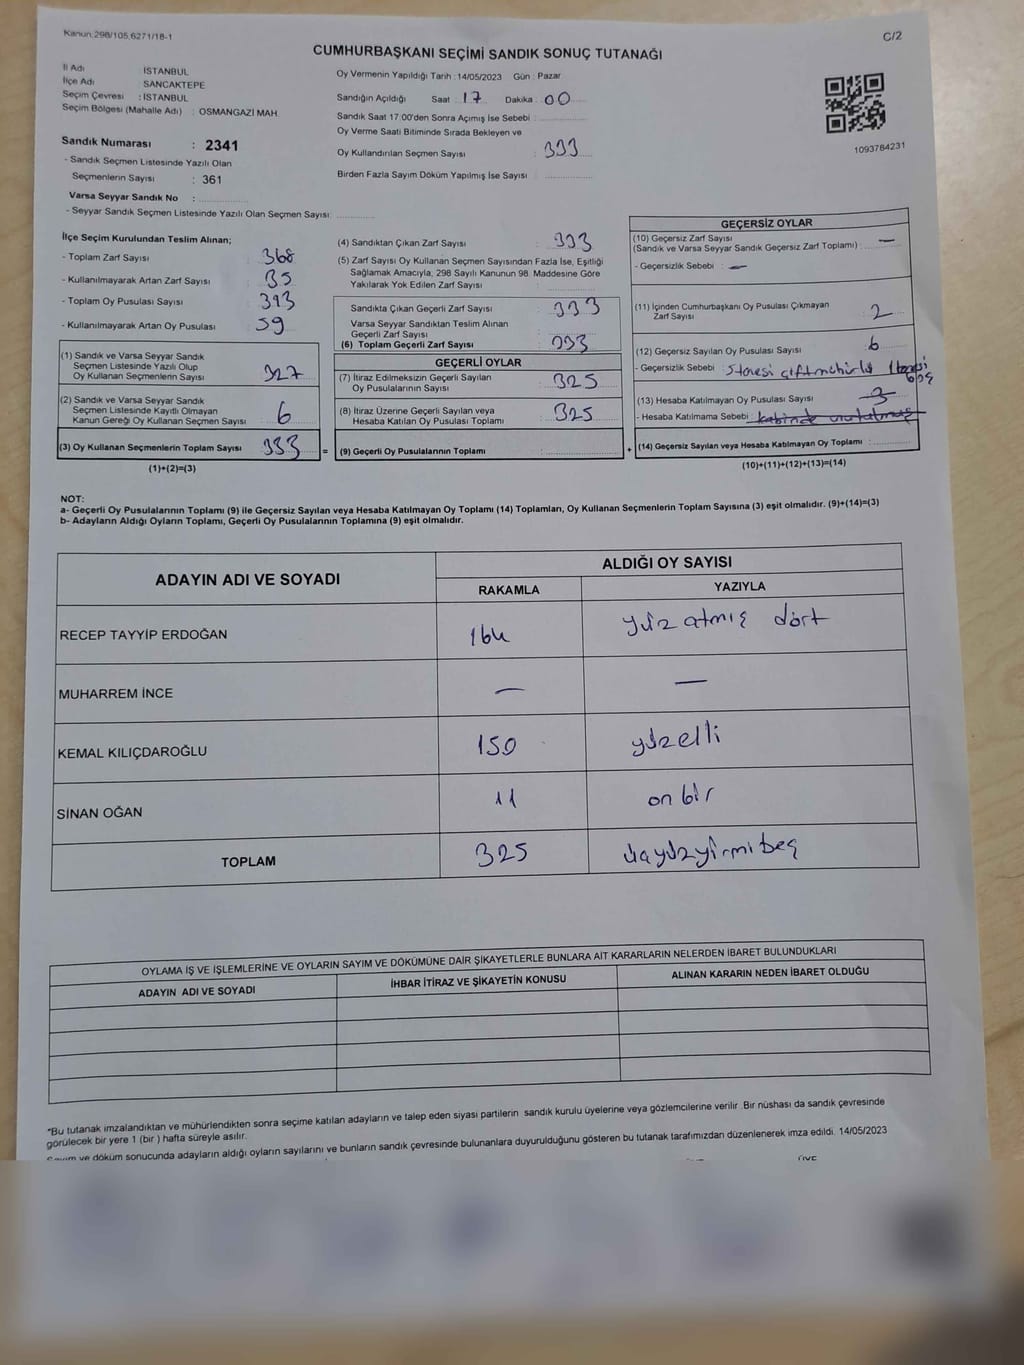 Kanun:298/105,6271/18-1
C/2
CUMHURBAŞKANI SEÇİMİ SANDIK SONUÇ TUTANAĞI
İl Adı İSTANBUL
İlçe Adı SANCAKTEPE
Seçim Çevresi : İSTANBUL
Seçim Bölgesi (Mahalle Adı) : OSMANGAZİ MAH.
Sandık Numarası : 2341
- Sandık Seçmen Listesinde Yazılı Olan
Seçmenlerin Sayısı : 361
Varsa Seyyar Sandık No :
- Seyyar Sandık Seçmen Listesinde Yazılı Olan Seçmen Sayısı:
Oy Vermenin Yapıldığı Tarih : 14/05/2023 Gün : Pazar
Sandığın Açıldığı Saat : 17 Dakika : 00
Sandık Saat 17.00'den Sonra Açımış İse Sebebi :
Oy Verme Saati Bitiminde Sırada Bekleyen ve
Oy Kullandırılan Seçmen Sayısı : 333
Birden Fazla Sayım Döküm Yapılmış İse Sayısı
1093784231
İlçe Seçim Kurulundan Teslim Alınan;
- Toplam Zarf Sayısı : 368
- Kullanılmayarak Artan Zarf Sayısı : 35
- Toplam Oy Pusulası Sayısı : 393
- Kullanılmayarak Artan Oy Pusulası : 59
(1) Sandık ve Varsa Seyyar Sandık
Seçmen Listesinde Yazılı Olup
Oy Kullanan Seçmenlerin Sayısı 327
(2) Sandık ve Varsa Seyyar Sandık
Seçmen Listesinde Kayıtlı Olmayan
Kanun Gereği Oy Kullanan Seçmen Sayısı 6
(3) Oy Kullanan Seçmenlerin Toplam Sayısı 333
(1)+(2)=(3)
(4) Sandıktan Çıkan Zarf Sayısı : 333
(5) Zarf Sayısı Oy Kullanan Seçmen Sayısından Fazla İse, Eşitliği
Sağlamak Amacıyla, 298 Sayılı Kanunun 98. Maddesine Göre
Yakılarak Yok Edilen Zarf Sayısı
Sandıkta Çıkan Geçerli Zarf Sayısı : 333
Varsa Seyyar Sandıktan Teslim Alınan
Geçerli Zarf Sayısı
(6) Toplam Geçerli Zarf Sayısı : 333
GEÇERLİ OYLAR
(7) İtiraz Edilmeksizin Geçerli Sayılan
Oy Pusulalarının Sayısı : 325
(8) İtiraz Üzerine Geçerli Sayılan veya
Hesaba Katılan Oy Pusulası Toplamı : 325
= (9) Geçerli Oy Pusulalarının Toplamı :
GEÇERSİZ OYLAR
(10) Geçersiz Zarf Sayısı
(Sandık ve Varsa Seyyar Sandık Geçersiz Zarf Toplamı) : —
- Geçersizlik Sebebi : —
(11) İçinden Cumhurbaşkanı Oy Pusulası Çıkmayan
Zarf Sayısı 2
(12) Geçersiz Sayılan Oy Pusulası Sayısı : 6
- Geçersizlik Sebebi : 5 tanesi çift mühürlü 1 tanesi
boş
(13) Hesaba Katılmayan Oy Pusulası Sayısı : 3
- Hesaba Katılmama Sebebi : kabinde unutulmuş
+ (14) Geçersiz Sayılan veya Hesaba Katılmayan Oy Toplamı :
(10)+(11)+(12)+(13)=(14)
NOT:
a- Geçerli Oy Pusulalarının Toplamı (9) ile Geçersiz Sayılan veya Hesaba Katılmayan Oy Toplamı (14) Toplamları, Oy Kullanan Seçmenlerin Toplam Sayısına (3) eşit olmalıdır. (9)+(14)=(3)
b- Adayların Aldığı Oyların Toplamı, Geçerli Oy Pusulalarının Toplamına (9) eşit olmalıdır.
ADAYIN ADI VE SOYADI
ALDIĞI OY SAYISI
RAKAMLA YAZIYLA
RECEP TAYYİP ERDOĞAN 164 yüz atmış dört
MUHARREM İNCE — —
KEMAL KILIÇDAROĞLU 150 yüzelli
SİNAN OĞAN 11 on bir
TOPLAM 325 üçyüzyirmibeş
OYLAMA İŞ VE İŞLEMLERİNE VE OYLARIN SAYIM VE DÖKÜMÜNE DAİR ŞİKAYETLERLE BUNLARA AİT KARARLARIN NELERDEN İBARET BULUNDUKLARI
ADAYIN ADI VE SOYADI İHBAR İTİRAZ VE ŞİKAYETİN KONUSU ALINAN KARARIN NEDEN İBARET OLDUĞU
*Bu tutanak imzalandıktan ve mühürlendikten sonra seçime katılan adayların ve talep eden siyasi partilerin sandık kurulu üyelerine veya gözlemcilerine verilir. Bir nüshası da sandık çevresinde
görülecek bir yere 1 (bir) hafta süreyle asılır.
Sayım ve döküm sonucunda adayların aldığı oyların sayılarını ve bunların sandık çevresinde bulunanlara duyurulduğunu gösteren bu tutanak tarafımızdan düzenlenerek imza edildi. 14/05/2023
ÜYE